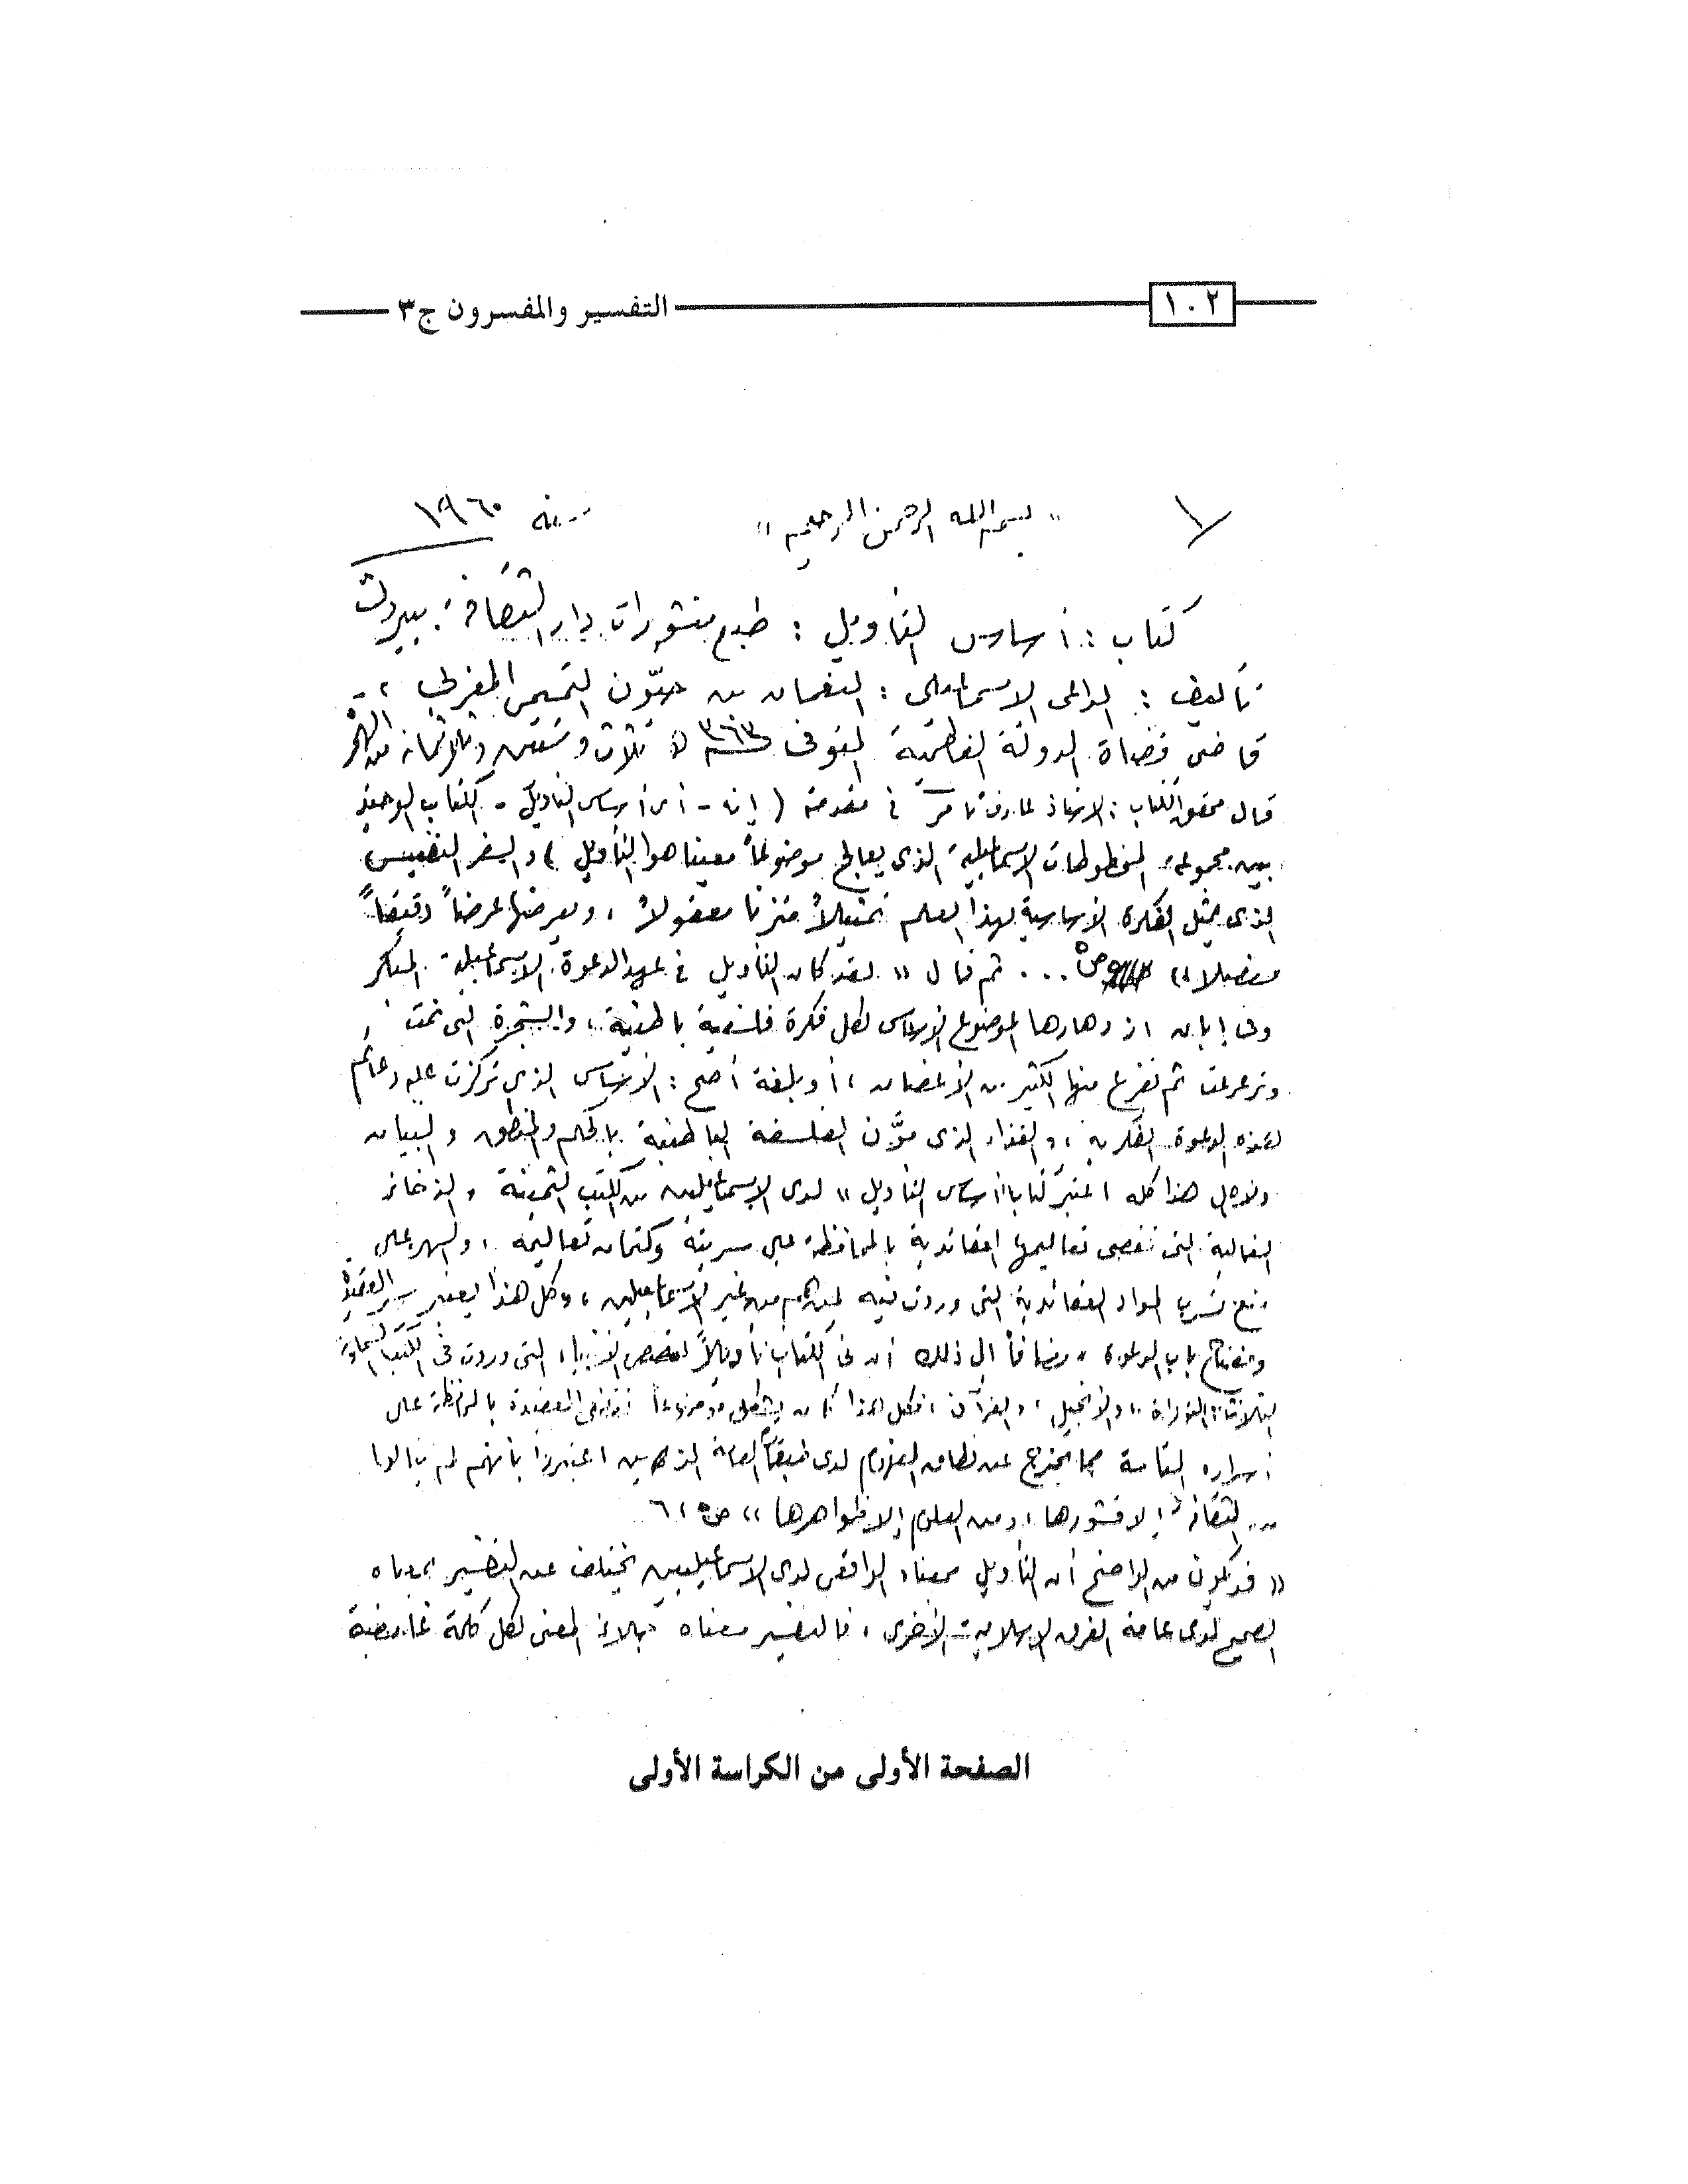 ١٠٢ التفسير والمفسرون ج٣
١ « بسم الله الرحمن الرحيم » سنة ١٩٦٠
كتاب : أساس التأويل : طبع منشورات دار الثقافة . بيروت
تأليف : الداعى الإسماعيلى : النعمان بن حيّون التميمى المغربى
قاضى قضاة الدولة الفاطمية المتوفى سنة ٣٦٣ هـ ثلاث وستين وثلاثمائة من الهجرة
قال محقق الكتاب : الأستاذ عارف تامر فى مقدمته ( إنه - أى أساس التأويل - الكتاب الوحيد
بين مجموعة المخطوطات الإسماعيلية الذى يعالج موضوعاً معينا هو التأويل ) والسفر النفيس
الذى يمثل الفكرة الأساسية لهذا العلم تمثيلاً متزنا معقولاً ، ويعرضها عرضاً دقيقاً
مفصلا » ص٥ ... ثم قال « لقد كان التأويل فى عهد الدعوة الإسماعيلية المبكر
وفى إبان ازدهارها الموضوع الأساسى لكل فكرة فلسفية باطنية ، والشجرة التى نمت
وترعرعت ثم تفرع منها الكثير من الأغصان ، أو بلغة أصح : الأساس الذى تركزت عليه دعائم
هذه الدعوة الفكرية ، والغذاء الذى موَّن الفلسفة الباطنية بالحكم والمنطق والبيان
ولأجل هذا كله اعتبر كتاب « أساس التأويل » لدى الإسماعيليين من الكتب الثمينة والذخائر
الغالية التى تقضى تعاليمها العقائدية بالمحافظة على سريته وكتمان تعاليمه ، والسهر على
منع تسرب المواد العقائدية التى وردت فيه لمن هم من غير الإسماعيليين ، وكل هذا يعتبر سر العقيدة
ومفتاح باب الدعوة ، مضافاً إلى ذلك أن فى الكتاب تأويلاً لقصص الأنبياء التى وردت فى الكتب السماوية
الثلاثة : التوراة ، والإنجيل ، والقرآن ، فكل هذا كان يشكل موضوعاً تقضى العقيدة بالمحافظة على
أسراره التامة مما يخرج عن نطاق المفهوم لدى طبقة العامة الذين اعتبروا بأنهم لم ينالوا
من الثقافة إلا قشورها ، ومن العلوم إلا ظواهرها » ص٥ ، ٦
« قد يكون من الواضح أن التأويل بمعناه الواقعى لدى الإسماعيليين يختلف عن التفسير بمعناه
الصحيح لدى عامة الفرق الإسلامية الأخرى ، فالتفسير معناه جلاء المعنى لكل كلمة غامضة
الصفحة الأولى من الكراسة الأولى